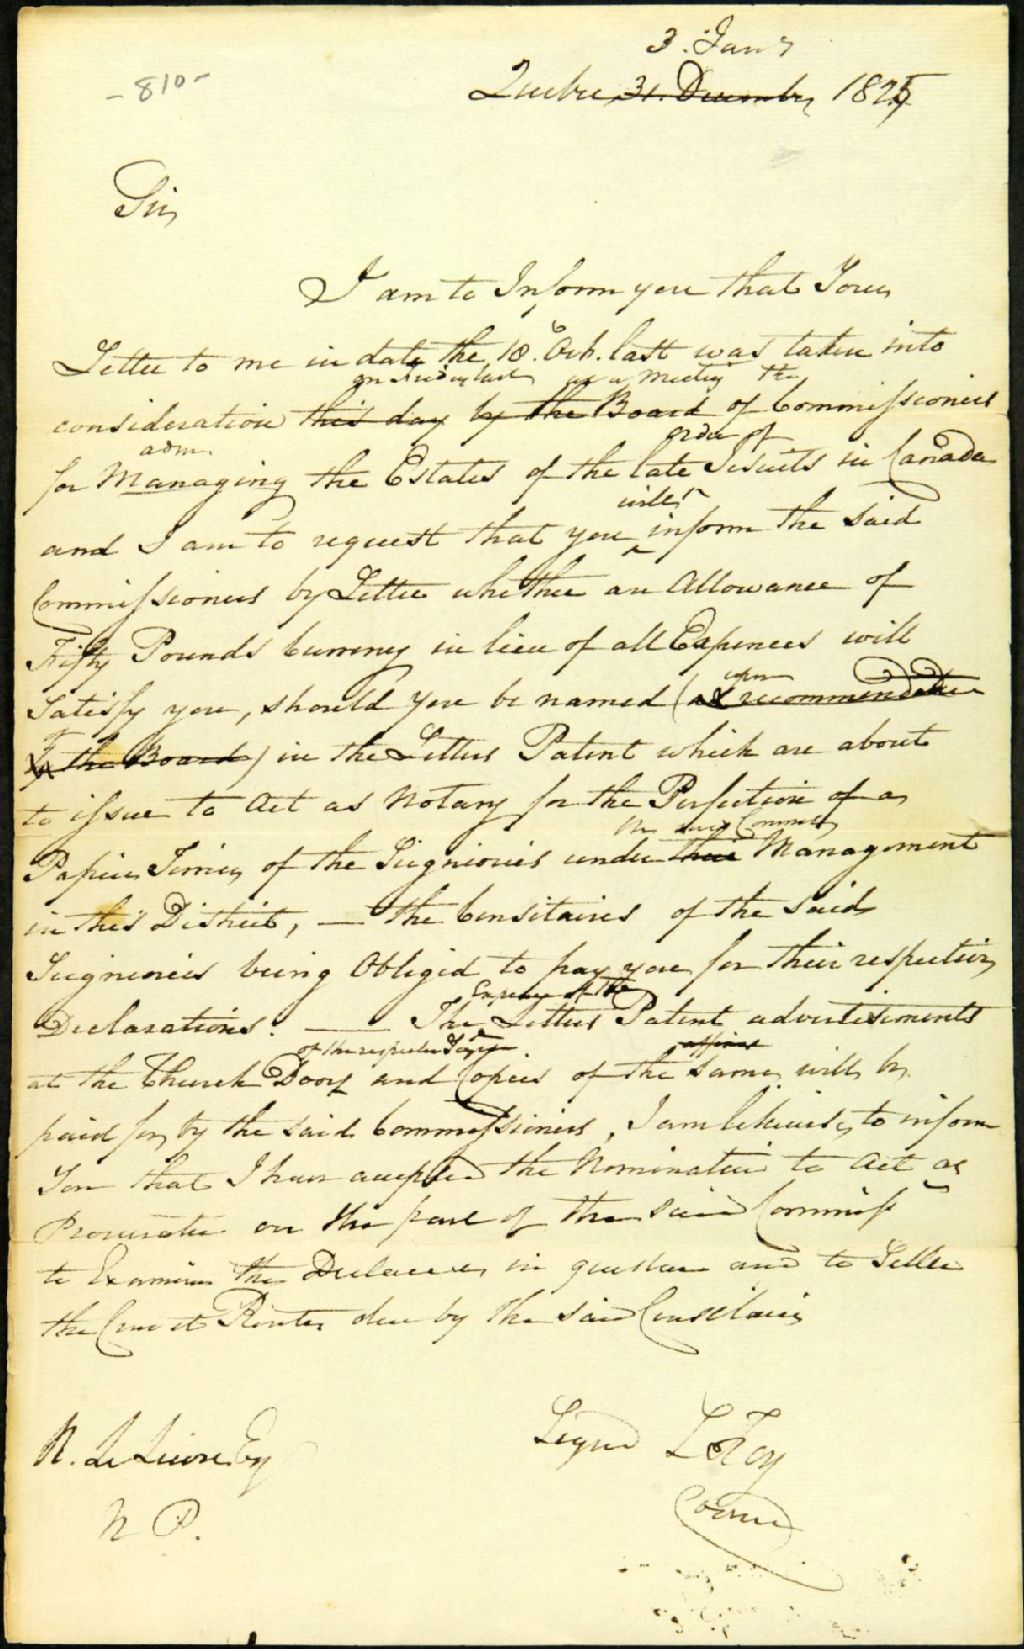 - 810 -
3. Jany
Quebec 31. December 1825
Sir,
I am to Inform you that Your
Letter to me in date the 18. Octr. last was taken into
on last at a Meeting the
consideration this day by the Board of Commissioners
adm. order of
for Managing the Estates of the late Jesuits in Canada
will
and I am to request that you inform the said
Commissioners by Letter whether an Allowance of
Fifty Pounds Currency in lieu of all Expences will
upon
Satisfy you, should you be named (as recommendation
of the Board) in the Letters Patent which are about
to issue to Act as Notary for the Perfection of a
the said Commrs
Papier Terrier of the Seigniories under their Management
in this District, — the Censitaires of the said
Seigniories being Obliged to pay you for their respective
Expence of the
Declarations. — The Letters Patent advertisements
of the respective
at the Church Doors and Copies of the same will be
paid for by the said Commissioners, I am likewise to inform
You that I have accepted the Nomination to Act as
Procurator on the part of the said Commiss
to Examine the in question and to Settle
the Cens et Rentes due by the said Censitaires
Signed L Roy
N. Le Lievre Esq
N P.